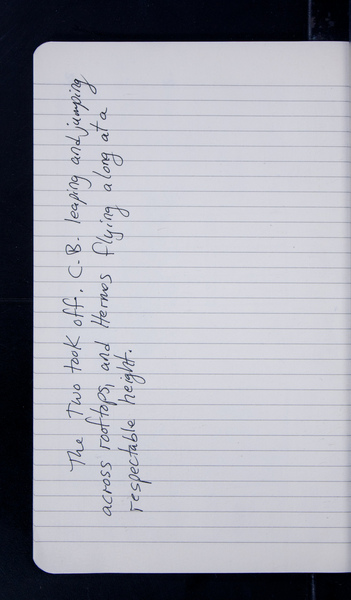 The Two took off. C.B. leaping and jumping
across rooftops, and Hermos flying along at a
respectable height.